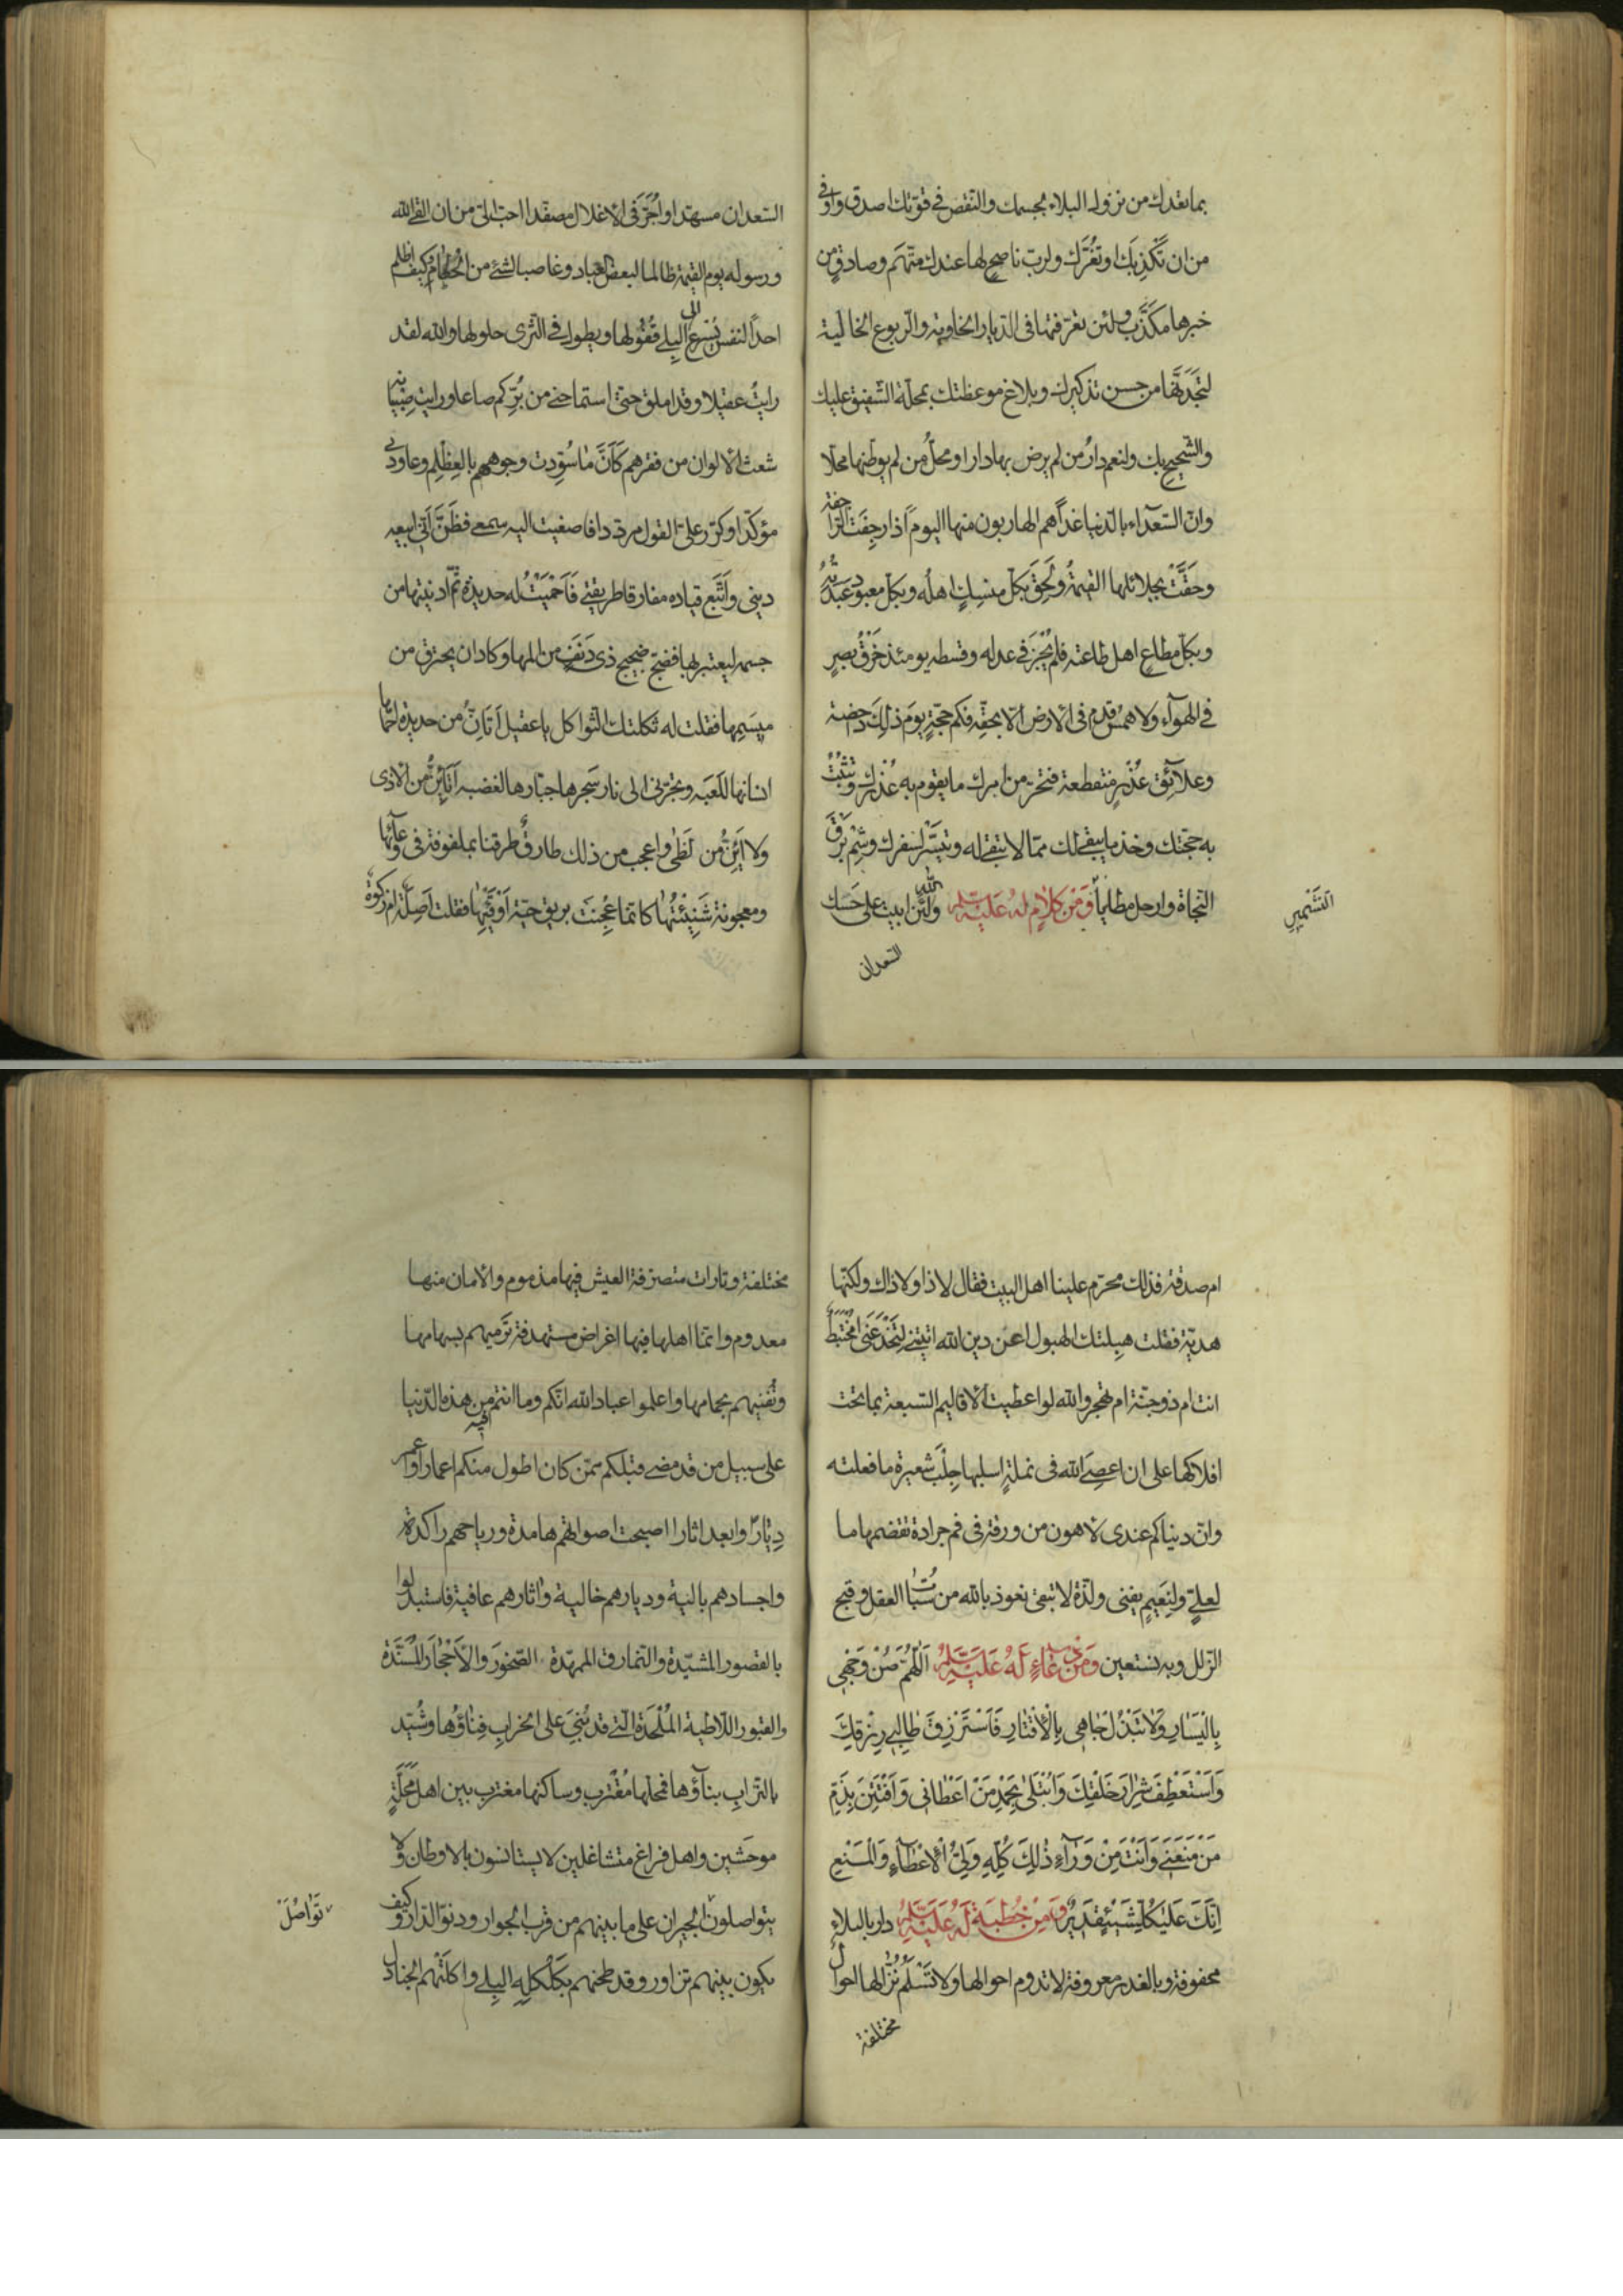 بما تعدك من نزول البلاء بجسمك والنقص في قوتك اصدق واوفى
من ان تَكْذِبَكَ او تَغُرَّك ولربّ ناصحٍ لها عندك متّهَم وصادقٍ من
خبرها مكَذَّب ولئن تعرّفتها فى الديار الخاوية والرّبوع الخالية
لتجدَنَّها من حسن تذكيرك وبلاغ موعظتك بمحلّة الشفيق عليك
والشّحيح بك ولنعم دارُ من لم يرض بها دارا ومحلُّ من لم يوطّنها محلّا
وانّ السّعدآء بالدّنيا غداً هم الهاربون منها اليوم اذا رجفَت الرّاجفة
وحقّتْ بجلائلها القيمةُ ولَحِقَ بكلّ منسكٍ اهلُه وبكلّ معبودٍ عَبَدَتُه
وبكلّ مطاعٍ اهل طاعته فلم يُجْزَ فى عدله وقسطه يومئذ خَرْقُ بصرٍ
فى الهوآء ولا همسُ قدمٍ فى الارض الّا بحقّه فكم حجّةٍ يومَ ذلك داحضة
وعلائق عُذْرٍ منقطعة فتحرّ من امرك ما يقوم به عُذْرُك وتَثْبُتُ
به حجّتك وخذ ما يبقى لك ممّا لا تبقى له وتيسّر لسفرك وشِمْ برْقَ
النجاة وارحل مطايا وَمَنْ كَلامٍ لَهُ عَلَيْهِ السَّلم والله لَئن ابيت على حَسَك
التَشْمِيرِ
السعدان
السّعدان مسهّدا او اُجَرَّ فى الاغلال مصفّدا احبّ الىّ من ان القى الله
ورسوله يوم القيمة ظالما لبعض العباد وغاصبا لشئ من الحُطام وكيف اظلم
احداً لنفسٍ يُسْرع الى البِلى قُفُولها ويطول فى الثّرى حلولها والله لقد
رايتُ عقيلا وقد املق حتى استماحنى من بُرِّكم صاعا ورايت صِبْيانه
شعث الالوان من فقرهم كَاَنَّمَا سُوِّدت وجوههم بالعِظْلِم وعاودنى
مؤكّدا وكرّر علىّ القول مردّدا فاصغيت اليه سمعى فظَنَّ اَنّى ابيعه
دينى وَاَتَّبع قياده مفارقا طريقتى فَاَحْمَيْتُ له حديدة ثمّ ادنيتها من
جسمه ليعتبر بها فضجّ ضجيج ذى دَنَفٍ من المها وكاد ان يحترق من
مِيسَمِها فقلت له ثكلتك الثّواكل يا عقيل اَتَاِنُّ من حديدة احماها
انسانها للَعَبه وتجرّنى الى نار سَجرها جبّارها لغضبه اَتَأِنُّ من الاذى
ولا ائِنُّ من لَظَى واعجب من ذلك طارقٌ طرقنا بملفوفة فى وعآئها
ومعجونة شَنِئْتُها كانّما عُجِنَت بريق حيّة اَوْ قَيْئِها فقلت اَصِلَةٌ ام زكوة
ام صدقة فذلك محرّم علينا اهل البيت فقال لا ذا ولا ذاك ولكنّها
هديّة فقلت هبلتك الهبول اعن دين الله اتيتنى لِتَخْدَعَنى اَمُخْتَبِطٌ
انت ام ذو جنّة ام تهجر والله لو اعطيت الاقاليم السّبعة بما تحت
افلاكها على ان اعصى الله فى نملةٍ اسلبها جلْب شعيرة ما فعلته
وانّ دنياكم عندى لاهون من ورقة فى فم جرادة تقضمها ما
لعلىٍّ ولنعيمٍ يفنى ولذّة لا تبقى نعوذ بالله من سُبات العقل وقبح
الزلل وبه نستعين وَمَنْ دُعَاءٍ لَهُ عَلَيْهِ السَّلمُ اَللّهُمَّ صُنْ وَجْهِى
بِالْيَسَارِ وَلَا تَبْذُلْ جَاهِى بِالْاِقْتَارِ فَاَسْتَرْزِقَ طَالِبِى رِزْقِكَ
وَاَسْتَعْطِفَ شِرَارَ خَلْقِكَ وَاُبْتَلَى بِحَمْدِ مَنْ اَعْطَانِى وَاُفْتَتَنَ بِذَمِّ
مَنْ مَنَعَنِى وَاَنْتَ مِنْ وَرَآءِ ذٰلِكَ كُلِّهِ وَلِىُّ الْاِعْطَآءِ وَالْمَنْعِ
اِنَّكَ عَلَى كُلِّ شَيْءٍ قَدِيرٌ وَمِنْ خُطْبَةٍ لَهُ عَلَيْهِ السَّلمُ دار بالبلاءِ
محفوفة وبالغدر معروفة لا تدوم احوالها ولا تَسْلَمُ نُزّالها احوال
مختلفة
مختلفة وتارات متصرّفة العيش فيها مذموم والامان منها
معدوم وانّما اهلها فيها اغراض مستهدفة تَرْميهم بسهامها
وتُفْنيهم بحمامها واعلموا عباد الله انّكم وما انتم فيه من هذه الدّنيا
على سبيل من قد مضى قبلكم ممّن كان اطول منكم اعمارا واعمر
دِيَارًا وابعد اثارا اصبحت اصواتهم هامدة ورياحهم راكدة
واجسادهم بالية وديارهم خالية واثارهم عافية فاستبدلوا
بالقصور المشيّدة والنّمارق الممهّدة الصّخورَ والاَحْجَارَ المُسَنَّدَة
والقبور اللّاطية المُلْحَدَة الّتى قد بُنِىَ على الخراب فِنَاؤُها وشُيّد
بالتّراب بنآؤها فمحلّها مُقْتَرِب وساكنها مغترب بين اهل مَحَلَّةٍ
موحشين واهل فراغ متشاغلين لا يستانسون بالاوطان ولا
يتواصلون الجيران على ما بينهم من قرب الجوار ودنوّ الدّار وكيف
تَوَاصُلَ
يكون بينهم تزاور وقد طحنهم بكَلْكَلِه البِلى واكلتهم الجنادل